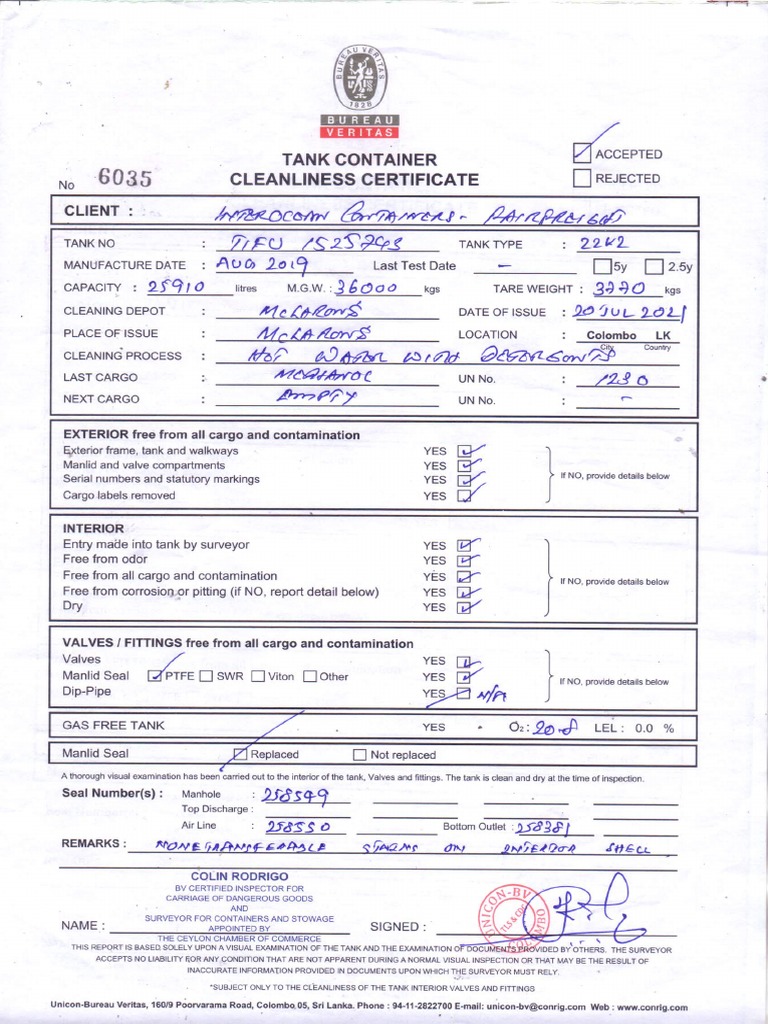 BUREAU VERITAS
1828
BUREAU
VERITAS
TANK CONTAINER
CLEANLINESS CERTIFICATE
ACCEPTED
REJECTED
No 6035
CLIENT : INTEROCEAN CONTAINERS - FAIRFREIGHT
TANK NO : TIFU 1525743 TANK TYPE : 22K2
MANUFACTURE DATE : AUG 2019 Last Test Date - 5y 2.5y
CAPACITY : 25910 litres M.G.W. : 36000 kgs TARE WEIGHT : 3770 kgs
CLEANING DEPOT : McLARENS DATE OF ISSUE : 20 JUL 2021
PLACE OF ISSUE : McLARENS LOCATION : Colombo LK
City Country
CLEANING PROCESS : HOT WATER WITH DETERGENTS
LAST CARGO : METHANOL UN No. : 1230
NEXT CARGO : EMPTY UN No. : -
EXTERIOR free from all cargo and contamination
Exterior frame, tank and walkways YES
Manlid and valve compartments YES
Serial numbers and statutory markings YES
Cargo labels removed YES
If NO, provide details below
INTERIOR
Entry made into tank by surveyor YES
Free from odor YES
Free from all cargo and contamination YES
Free from corrosion or pitting (if NO, report detail below) YES
Dry YES
If NO, provide details below
VALVES / FITTINGS free from all cargo and contamination
Valves YES
Manlid Seal PTFE SWR Viton Other YES
Dip-Pipe YES N/A
If NO, provide details below
GAS FREE TANK YES O2 : 20.8 LEL : 0.0 %
Manlid Seal Replaced Not replaced
A thorough visual examination has been carried out to the interior of the tank, Valves and fittings. The tank is clean and dry at the time of inspection.
Seal Number(s) : Manhole : 258549
Top Discharge :
Air Line : 258550 Bottom Outlet : 258381
REMARKS : NONETRANSFERABLE STAINS ON INTERIOR SHELL
COLIN RODRIGO
BV CERTIFIED INSPECTOR FOR
CARRIAGE OF DANGEROUS GOODS
AND
SURVEYOR FOR CONTAINERS AND STOWAGE
APPOINTED BY
THE CEYLON CHAMBER OF COMMERCE
NAME : SIGNED :
UNICON-BV
COLOMBO
THIS REPORT IS BASED SOLELY UPON A VISUAL EXAMINATION OF THE TANK AND THE EXAMINATION OF DOCUMENTS PROVIDED BY OTHERS. THE SURVEYOR
ACCEPTS NO LIABILITY FOR ANY CONDITION THAT ARE NOT APPARENT DURING A NORMAL VISUAL INSPECTION OR THAT MAY BE THE RESULT OF
INACCURATE INFORMATION PROVIDED IN DOCUMENTS UPON WHICH THE SURVEYOR MUST RELY.
*SUBJECT ONLY TO THE CLEANLINESS OF THE TANK INTERIOR VALVES AND FITTINGS
Unicon-Bureau Veritas, 160/9 Poorvarama Road, Colombo 05, Sri Lanka. Phone : 94-11-2822700 E-mail: unicon-bv@conrig.com Web : www.conrig.com